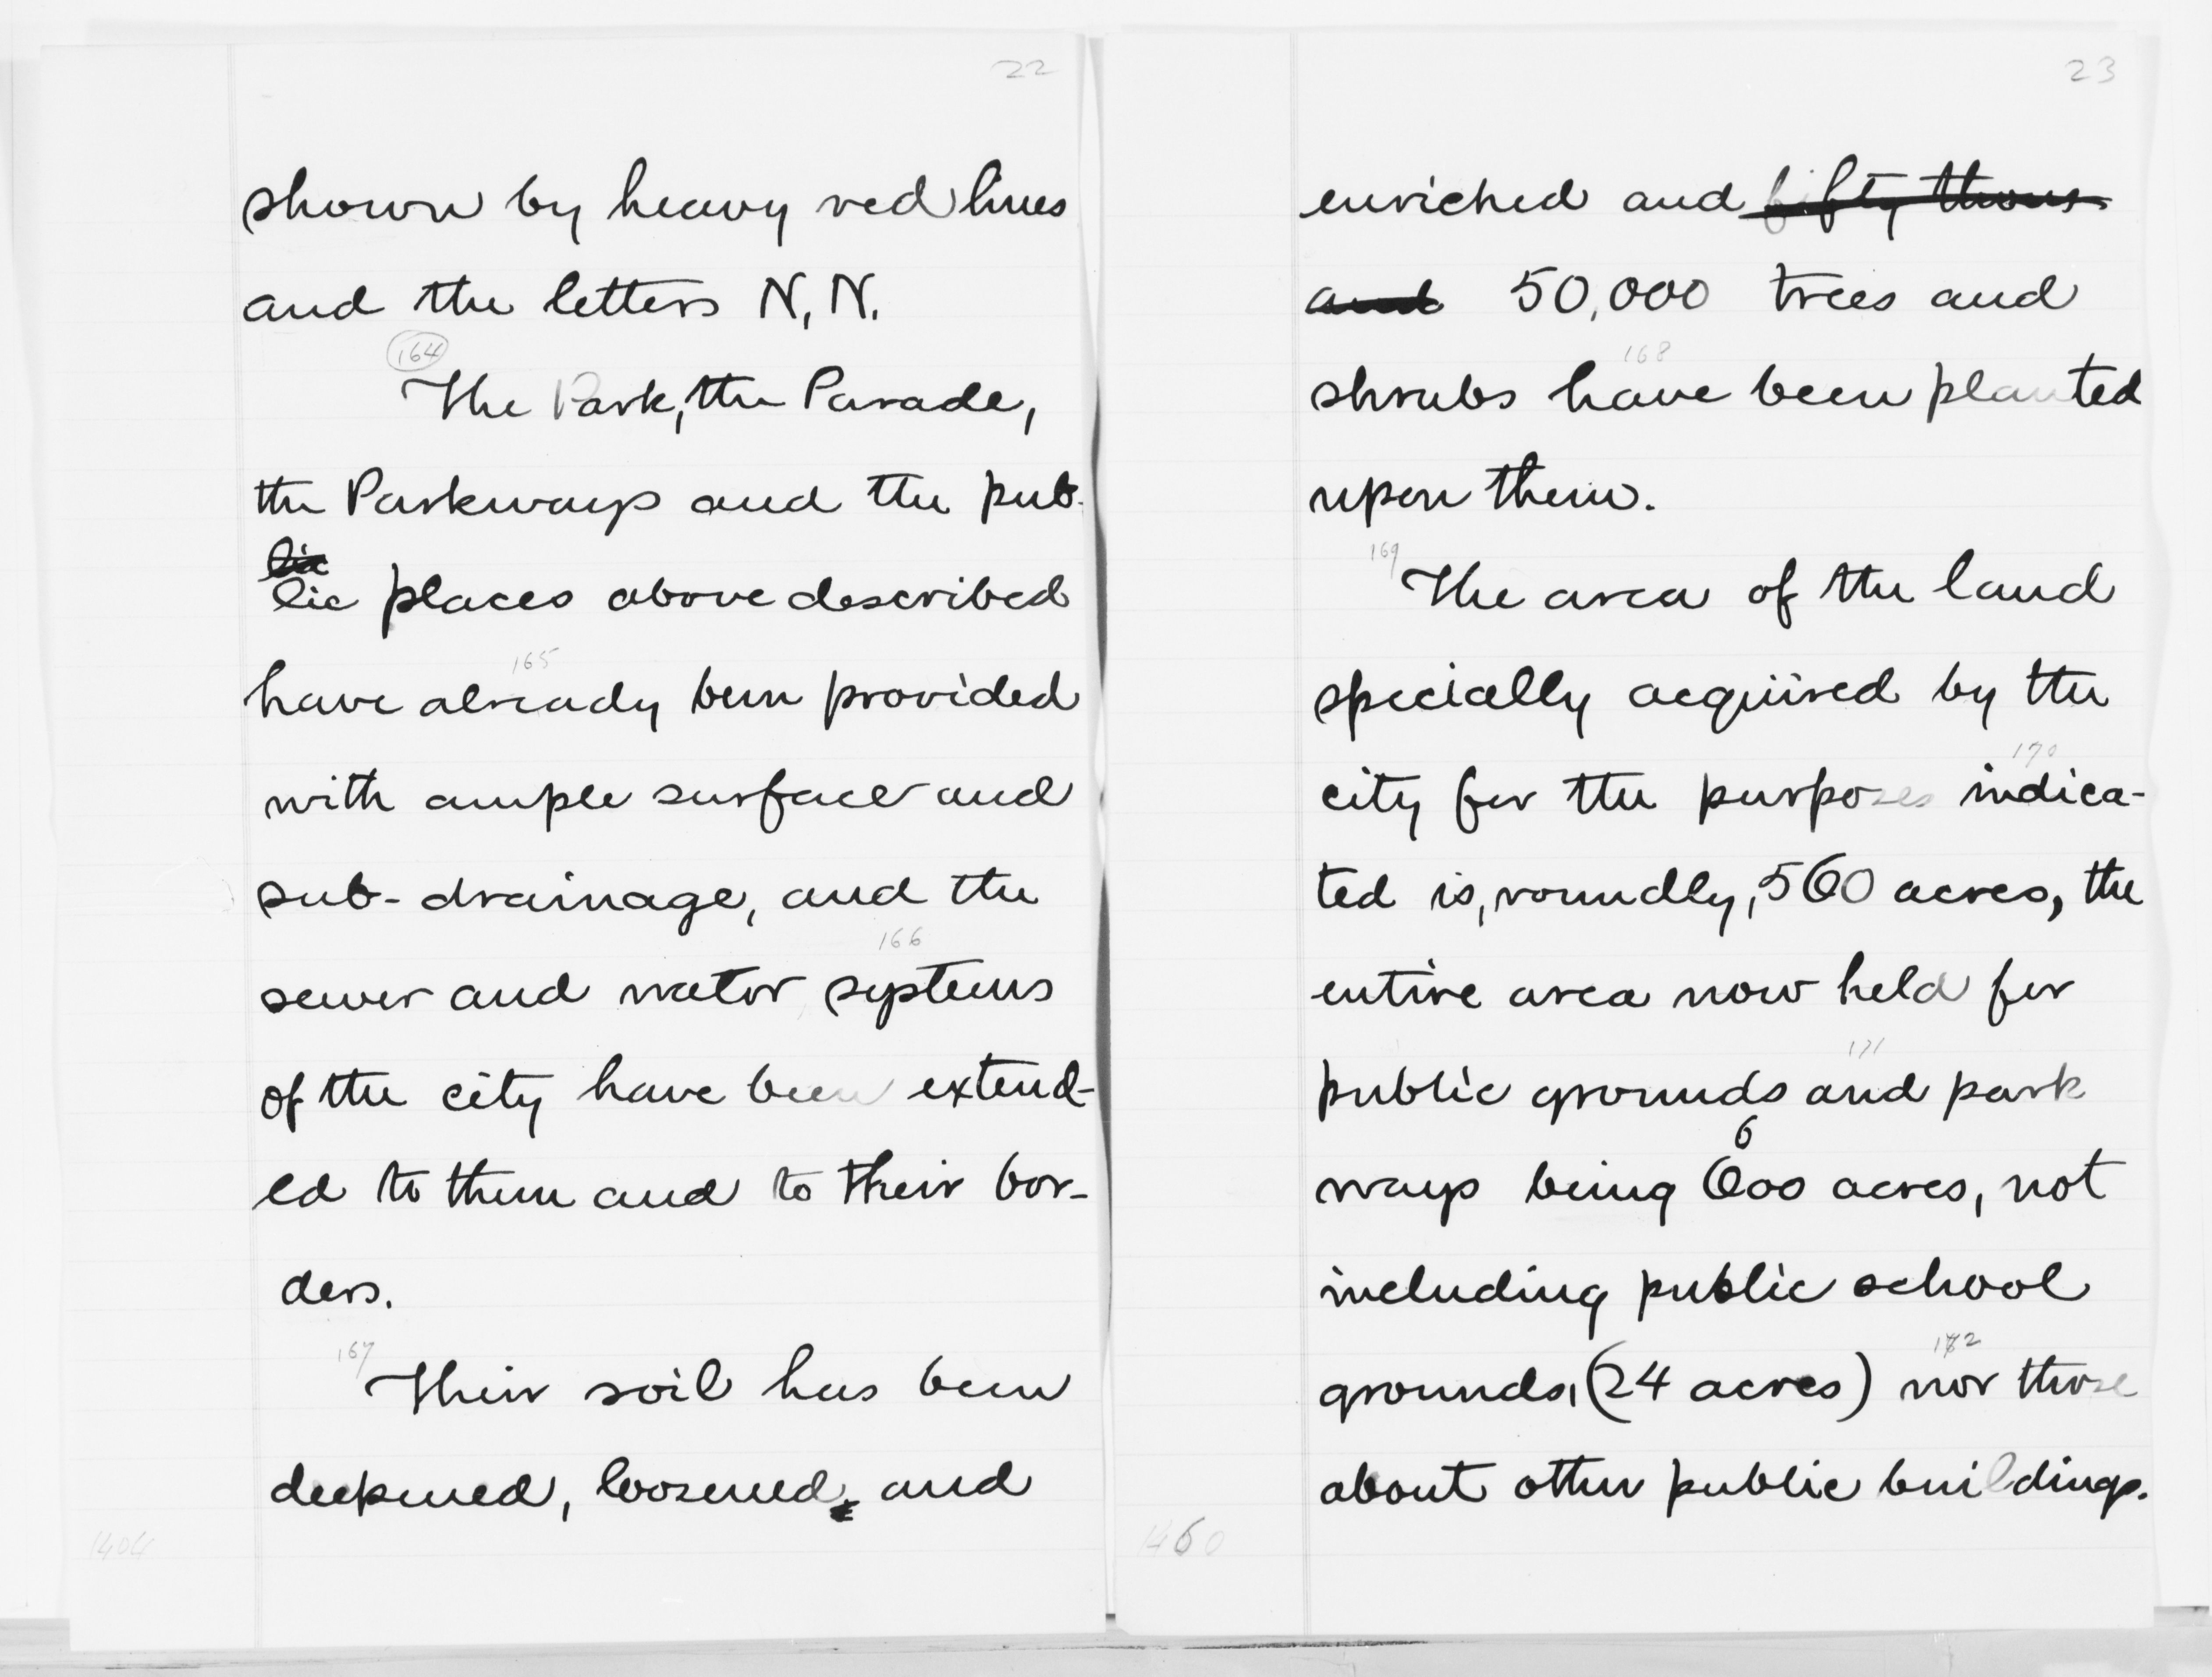 22
shown by heavy red lines
and the letters N, N.
164
The Park, the Parade,
the Parkways and the pub-
lic
lic places above described
165
have already been provided
with ample surface and
sub-drainage, and the
166
sewer and water systems
of the city have been extend-
ed to them and to their bor-
ders.
167
Their soil has been
deepened, loosened, and
1404
23
enriched and fifty thous-
and 50,000 trees and
168
shrubs have been planted
upon them.
169
The area of the land
specially acquired by the
170
city for the purposes indica-
ted is, roundly, 560 acres, the
entire area now held for
171
public grounds and park
6
ways being 600 acres, not
including public school
172
grounds, (24 acres) nor those
about other public buildings.
1460